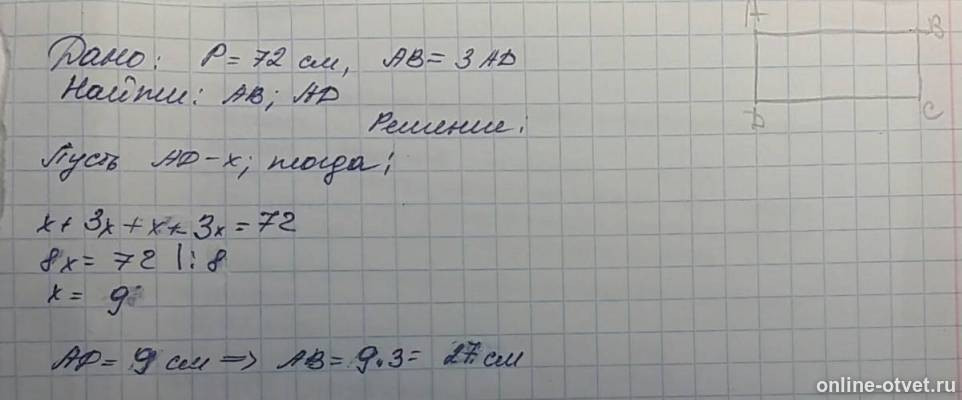 A
B
Дано: P = 72 см, AB = 3 AD
Найти: AB; AD
D
C
Решение:
Пусть AD - x; тогда:
x + 3x + x + 3x = 72
8x = 72 |: 8
x = 9
AD = 9 см => AB = 9·3 = 27 см
online-otvet.ru